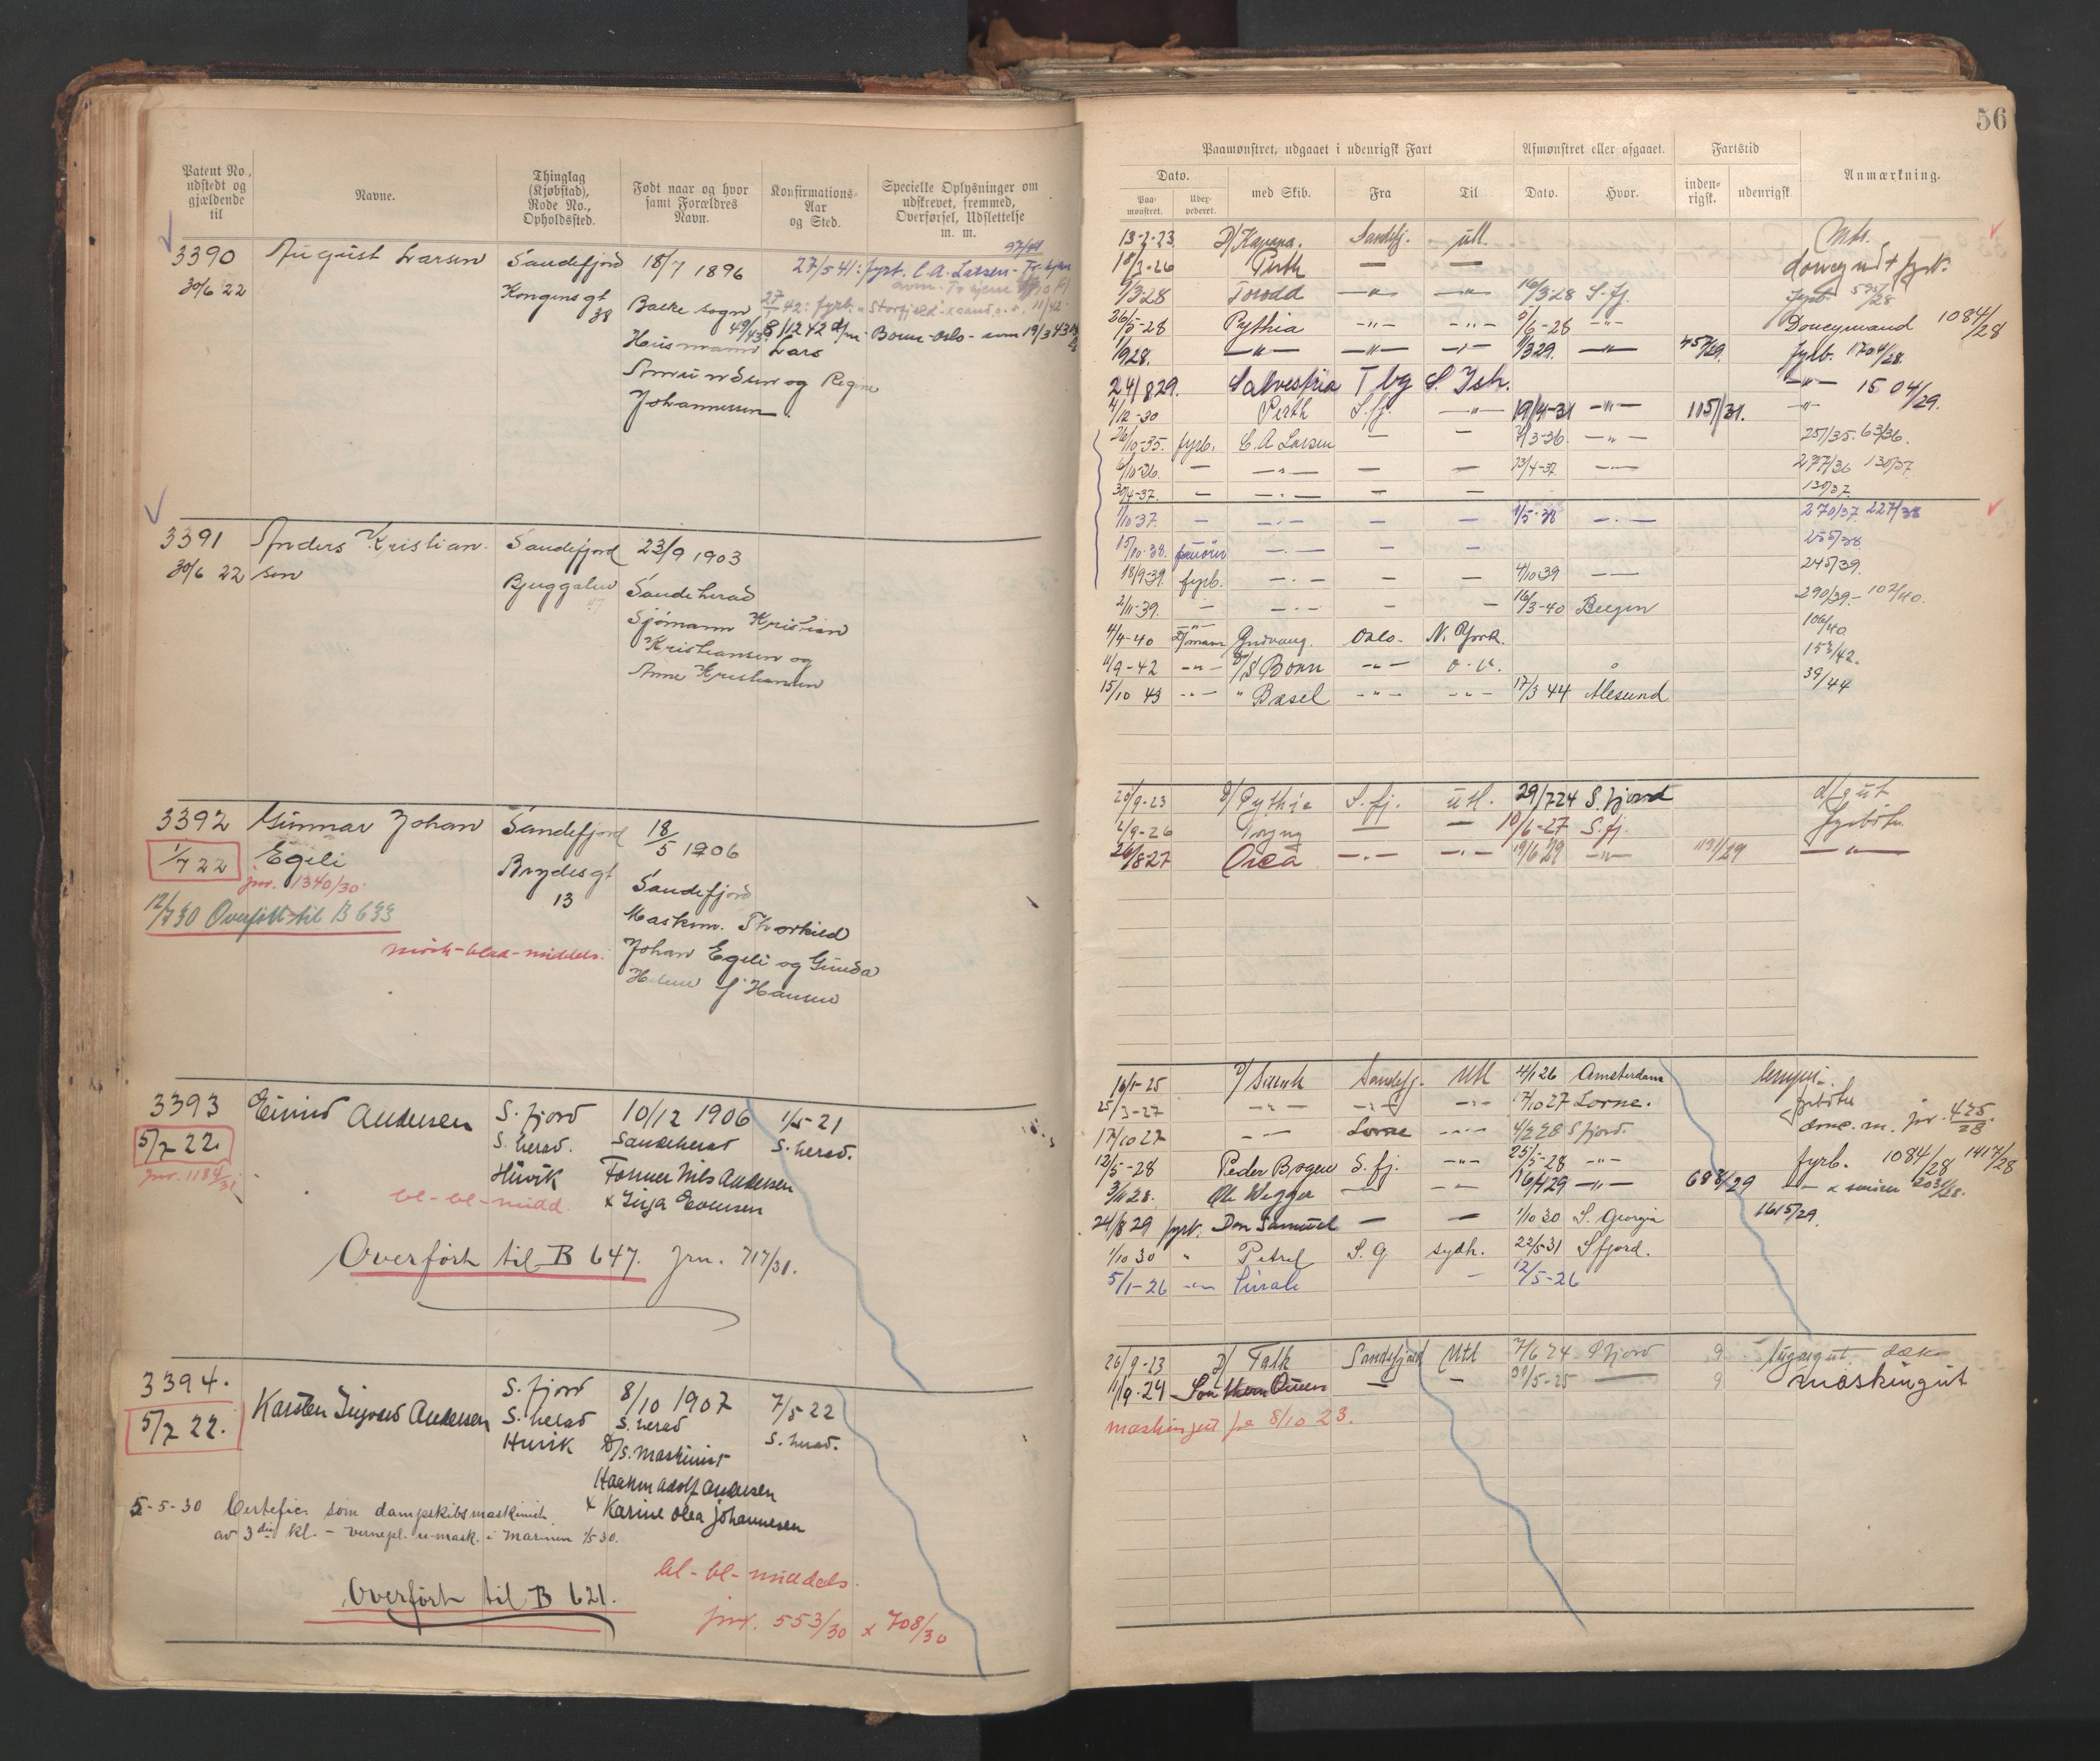 56
Patent No., udstedt og gjældende til
Navne.
Thinglag (Kjøbstad), Rode No., Opholdssted.
Født naar og hvor samt Forældres Navn.
Konfirmations-Aar og Sted.
Specielle Oplysninger om udskrevet, fremmed, Overførsel, Udslettelse m. m.
3390 August Larsen Sandefjord 18/7 1896
27/5 41: fyrb. C. A. Larsen
30/6 22 Kongensgt 38 Backe sogn
Husmand Lars
8/12 42 Bonn - Oslo - 19/3 43
Amundsen og Regine
Johannessen
3391 Anders Kristian- Sandefjord 23/9 1903
30/6 22 sen Bjuggalun Sandeherad
Sjømann Kristian
Kristiansen og
Anne Kristiansen
3392 Gunnar Johan Sandefjord 18/5 1906
1/7 22 Egeli Brydesgt 13 Sandefjord
jnr. 1340/30
12/7 30 Overført til B 633
Maskin. Thorkild
mørk-blaa-middels.
Johan Egeli og Gunda
Helene f Hansen
3393 Eivind Andersen S. fjord 10/12 1906 1/5-21
5/7 22. S. herad. Sandeherad S. herad.
jnr. 1184/31 Huvik Former Nils Andersen
bl-bl-midd. x Inga Evensen
Overført til B 647. jnr. 717/31.
3394. Karsten Ingvald Andersen S. fjord 8/10 1907 7/5 22
5/7 22. S. herad S. herad S. herad.
Huvik D/S. Maskinist
Haakon Adolf Andersen
x Karine Olea Johannesen
5-5-30 Certefic. som dampskibsmaskinist
av 3die kl. - vernepl. u-mask. i Marinen 1/5 30.
bl-bl-middels.
Overført til B 621.
jnr. 553/30 x 708/30
Paamønstret, udgaaet i udenrigsk Fart
Afmønstret eller afgaaet.
Fartstid
Anmærkning.
Dato. med Skib. Fra Til Dato. Hvor. inden-rigsk. udenrigsk.
Paa-mønstret. Udex-pederet.
13-2-23. D/ Kavana. Sandefj. utl.
18/3-26 Perth — — donkeymd + fyrb.
1/3-28 Torodd —"— —"— 16/3-28 S. fj. fyrb. 595/28
26/5-28 Pythia -"- -"- 5/6-28 -"- Donkeymand 1084/28
1/9 28. —"— —"— —"— 11/3 29. —"— 457/29. fyrb. 1704/28.
24/8 29. Salvestria Tbg S. Ish. —"— 1504/29.
4/12-30 Perth S. fj. —"— 19/4-31 —"— 1151/31. —"—
26/10-35. fyrb. C. A. Larsen — — 2/3-36. —"— 251/35. 63/36.
6/10-36. — —"— — — 23/4-37. —"— 277/36 130/37
30/4-37. — —"— — — 130/37
1/10 37. — —"— — — 1/5-38 —"— 270/37. 227/38
15/10 38. —"— — — 255/38
18/9-39. fyrb. —"— — — 4/10 39 —"— 245/39.
2/11-39. — —"— — — 16/3-40 Bergen 290/39.- 102/40.
4/4-40 D/mann Oslo. N. York. 106/40
11/9-42 -"- D/S Bonn -"- 153/42.
15/10 43 -"- " Basel -"- -"- 17/3 44 Ålesund 39/44
20/9-23 D/ Pythia S. fj. utl. 29/7 24 S. fjord d/gut
2/9-26 Toryng — — 10/6-27 S. fj. fyrbøter
26/8 27 Orca —"— —"— 19/6 29 —"— 1191/29 —"—
16/1-25 D/ Sirrah Sandefj. Utl 4/1 26 Amsterdam
25/3-27 -"- -"- -"- 17/10 27 Lorne. fyrbøter
17/10 27 -"- Lorne -"- 4/2 28 S fjord. jnr. 425/28
12/5-28 Peder Bogen S. fj. -"- 25/5-28 -"- fyrb. 1084/28 1417/28
3/11 28. Ole Wegger — -"- 16/4 29 —"— 688/29
24/8 29 fyrb. Don Samuel — — 1/10 30 S. Georgia 1615/29.
1/10 30 " Petrel S. G sydh. 22/5 31 S fjord.
5/1-26 -"- Sirrah — 12/5-26
26/9-23 D/ Falk Sandefjord Utl 7/6 24 S fjord 9
11/9-24 Southern Queen — — 30/5-25 — 9 maskingut
maskingut fra 8/10 23.